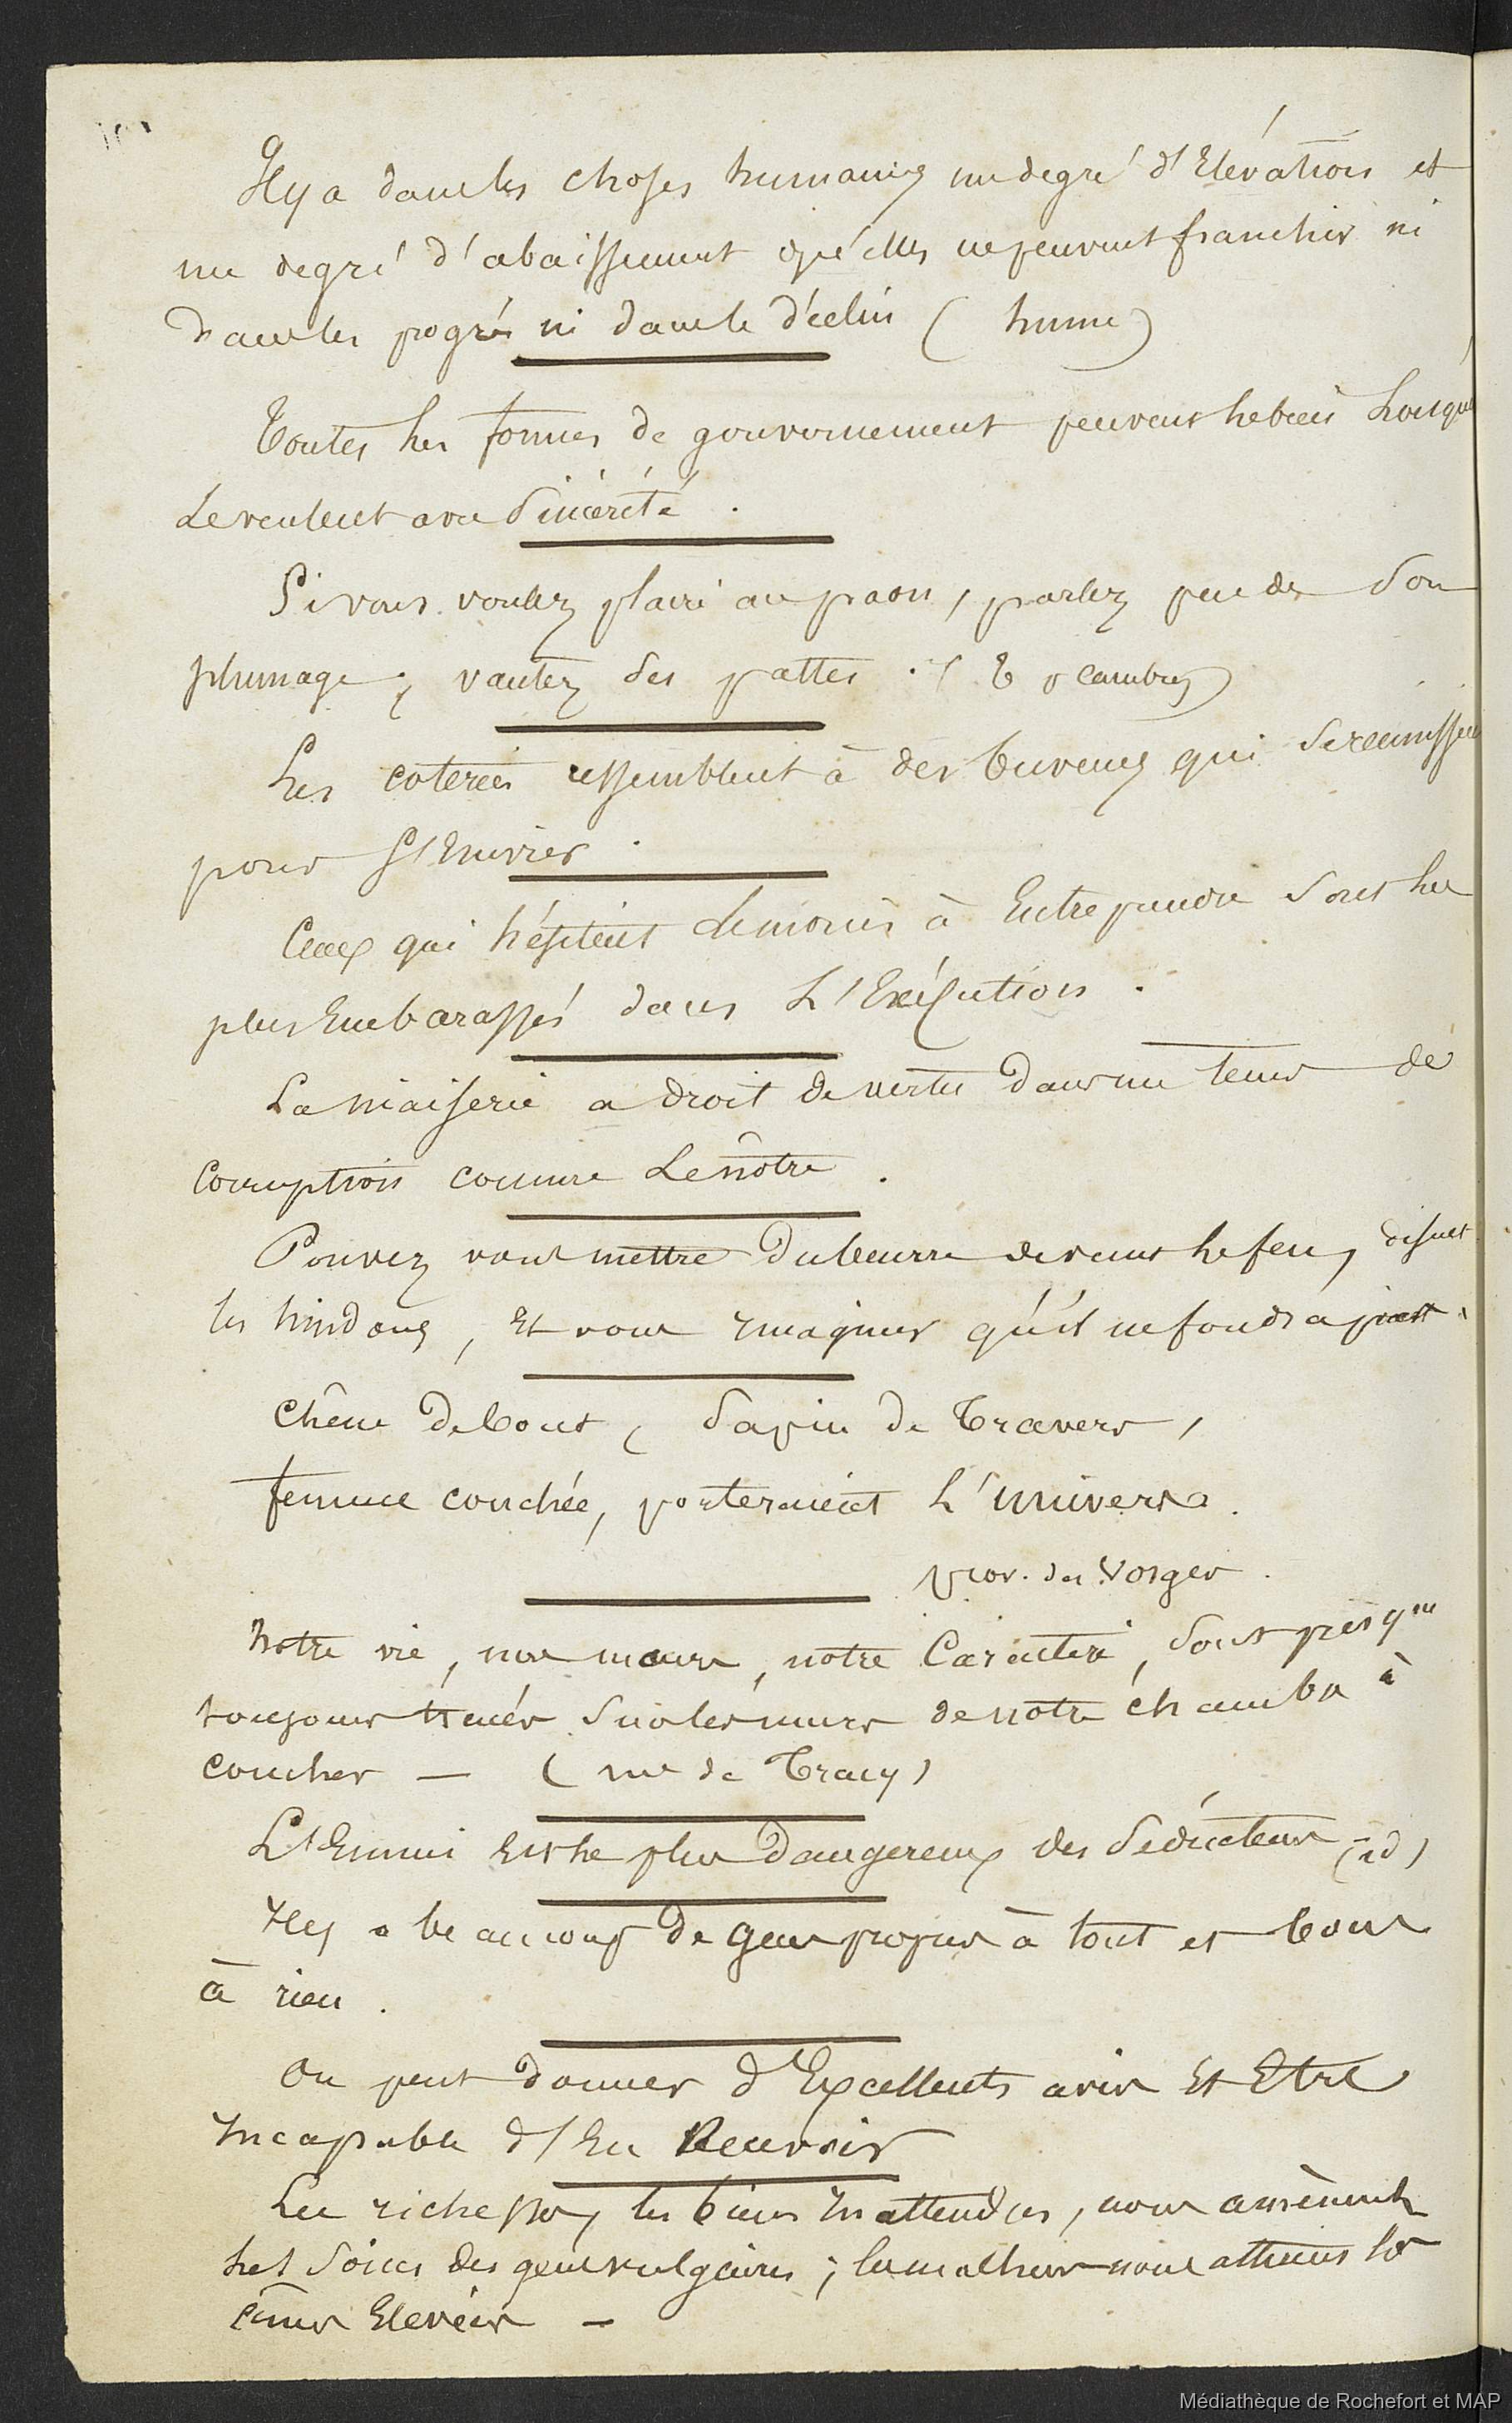 Il y a dans les choses humaines un degré d'Elévation et
un degré d'abaissement qu'elles ne peuvent franchir ni
dans les progrés ni dans le déclin ( hume )
Toutes les formes de gouvernement peuvent
Le veulent avec Sincérité .
Si vous voulez plaire au paon, parlez peu de Son
plumage ; vantez Ses pattes .
Les coteries ressemblent à des buveurs qui Se réunissent
pour S'Enivrer .
Ceux qui hésitent Le moins à Entreprendre Sont Les
plus Embarassés dans L'Exécution .
La niaiserie a droit de vertu dans un tems de
Corruption comme Le nôtre .
Pouvez vous mettre du beurre devant Le feu, disent
les hindous, Et vous Imaginer qu'il ne fondra
Chêne Debout, Sapin de Travers,
femme couchée, porteraient L'univers .
prov. des Vosges .
Notre vie, nos mœurs, notre Caractere, Sont presque
toujours tracés Sur les murs de notre chambre à
coucher — ( me de Tracy )
L'Ennui Est Le plus Dangereux des Séducteurs (id)
Il y a beaucoup de gens propres à tout et bons
à rien .
On peut donner d'Excellents avis Et Etre
Incapable d'En Recevoir
Les richesses, les biens Inattendus, nous amènent
Les Soins des gens vulgaires ; le malheur nous attirent les
âmes Elevées —
Médiathèque de Rochefort et MAP